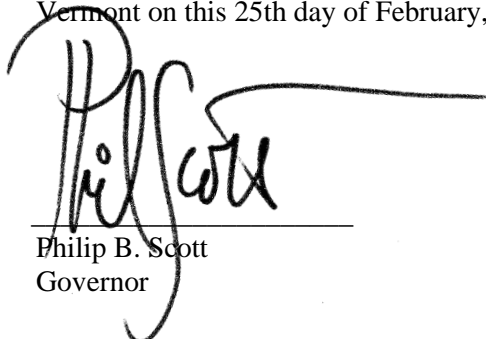 Vermont on this 25th day of February,
Phil Scott
Philip B. Scott
Governor